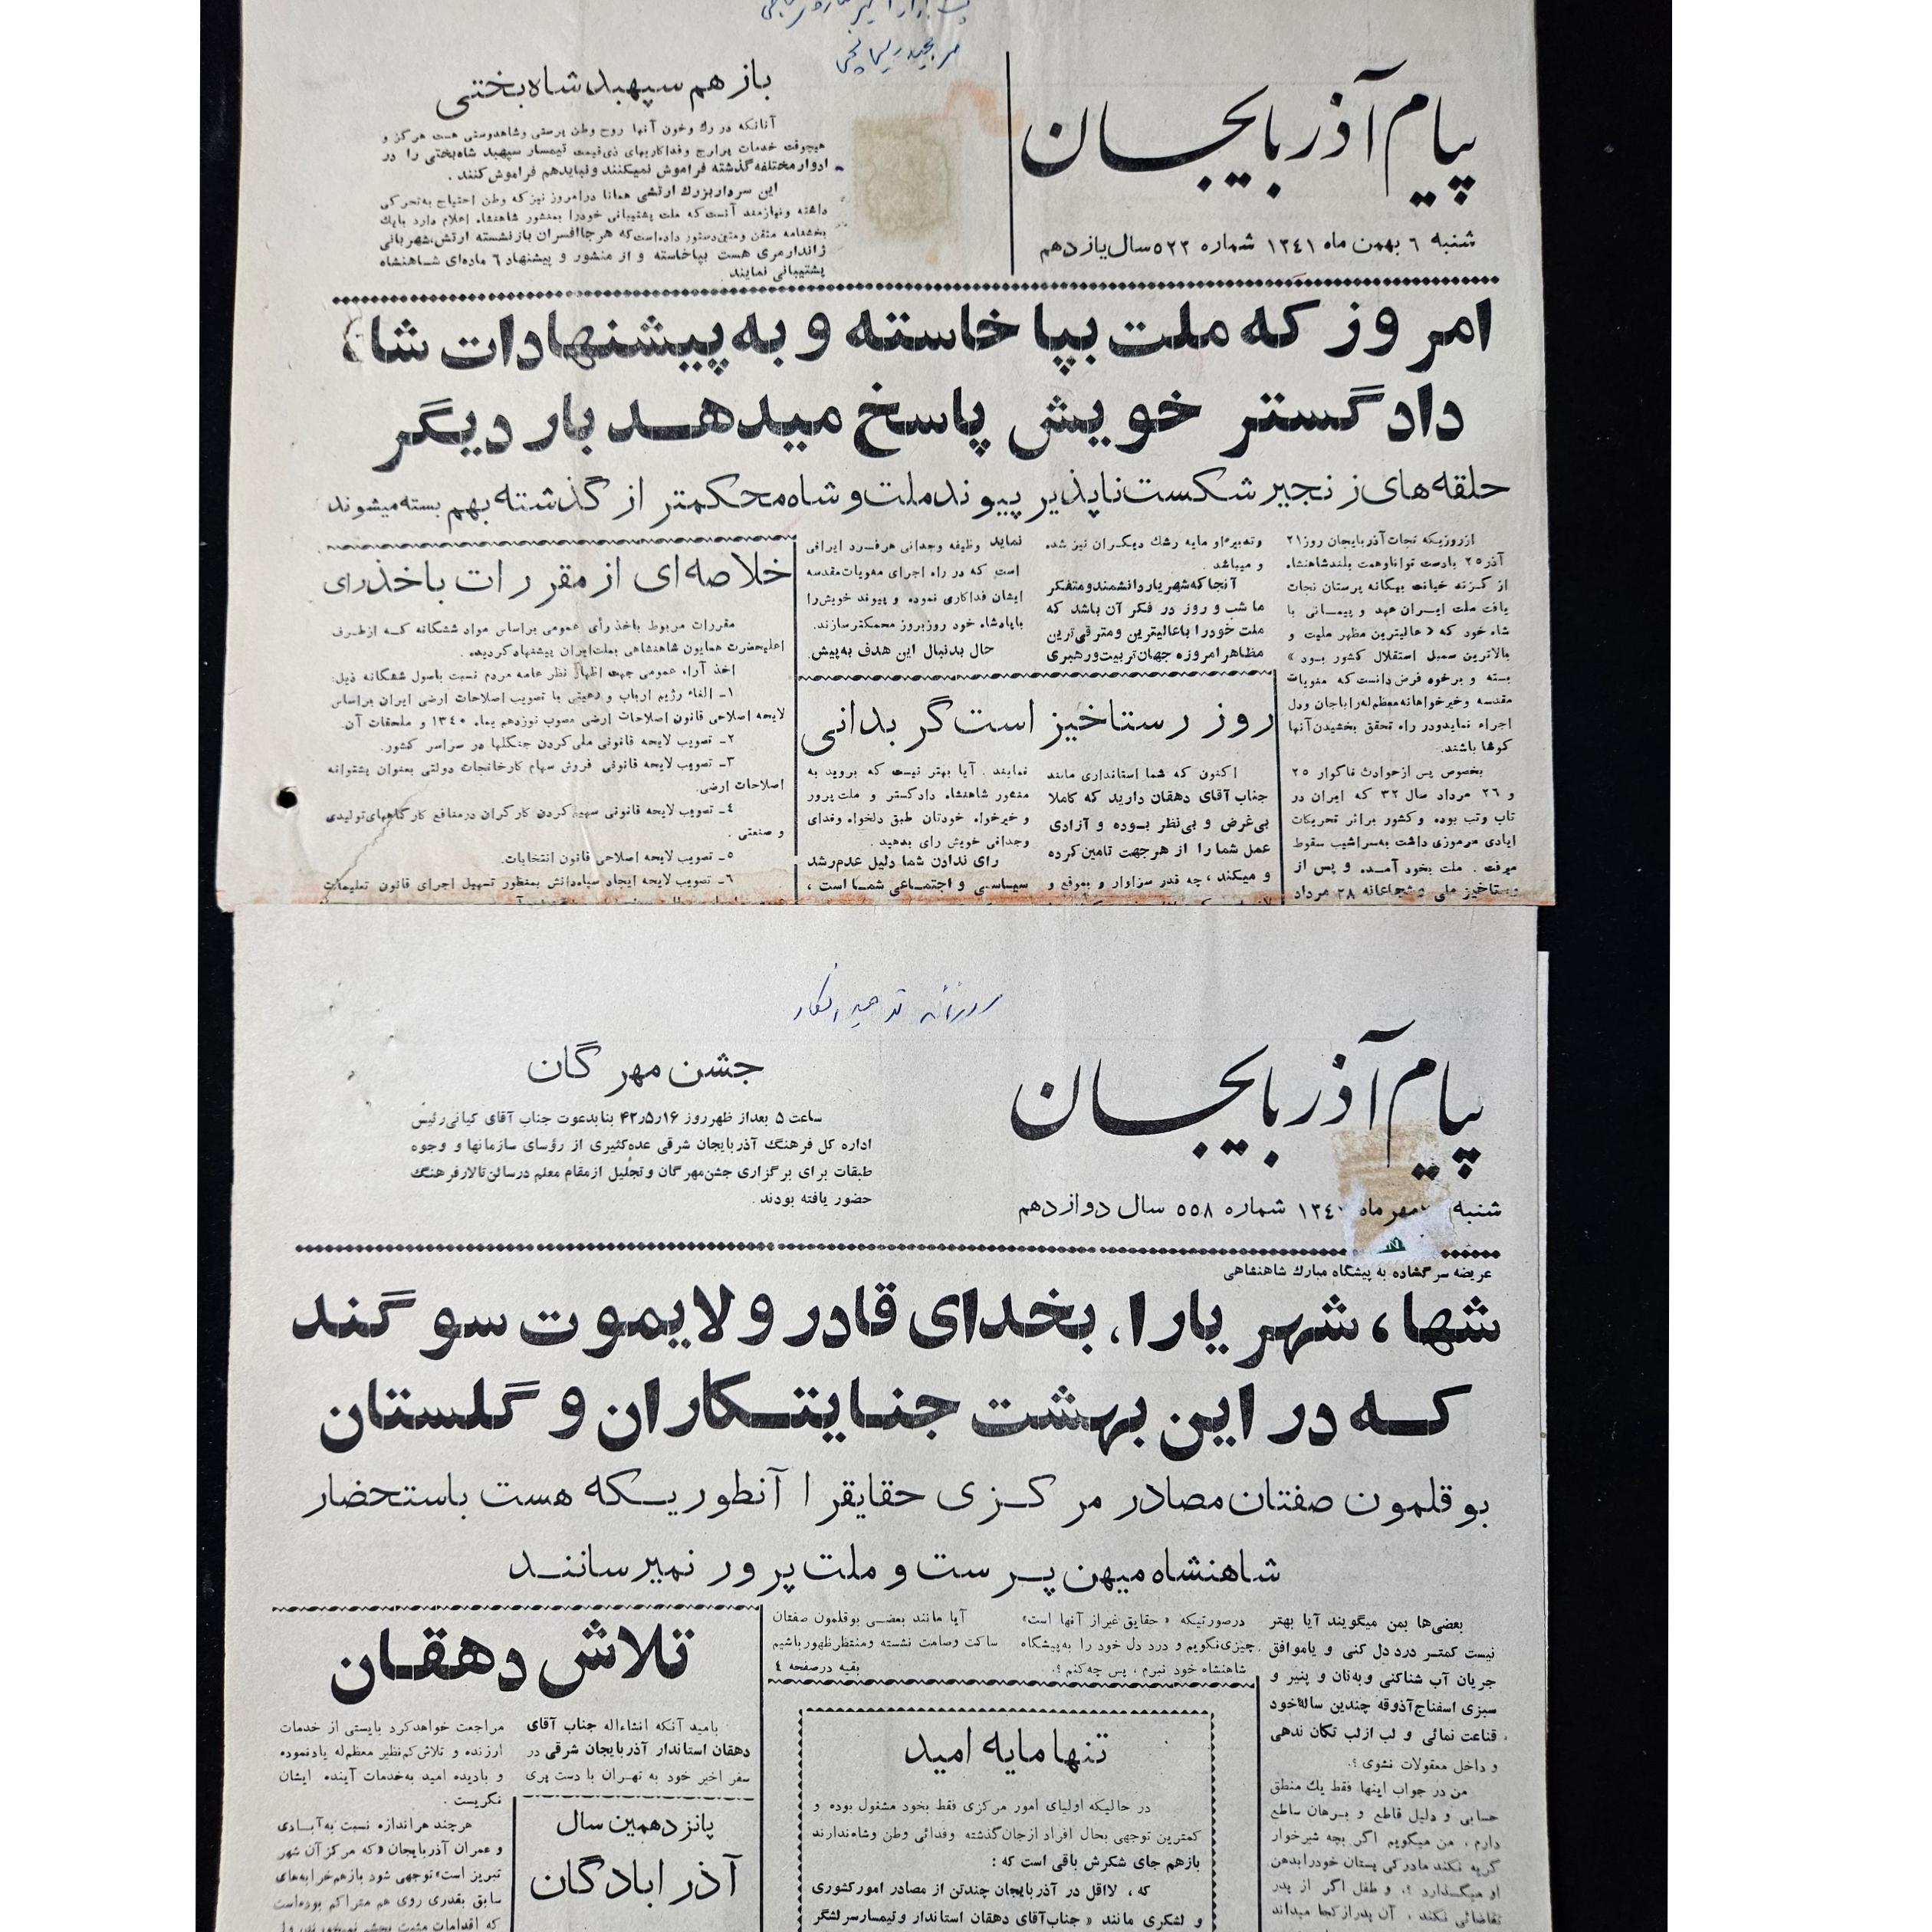 پیام آذربایجان
شنبه ٦ بهمن ماه ١٣٤١ شماره ٥٢٣ سال یازدهم
باز هم سپهبد شاه‌بختی
آنانکه در رك وخون آنها روح وطن پرستی وشاهدوستی هست هرگز و
هیچوقت خدمات پرارج وفداکاریهای ذی‌قیمت تیمسار سپهبد شاه‌بختی را در
ادوار مختلفه گذشته فراموش نمیکنند ونبایدهم فراموش کنند .
این سردار بزرك ارتشی همانا در امروز نیز که وطن احتیاج به‌تحرکی
داشته ونیازمند آنست که ملت پشتیبانی خودرا بمنشور شاهنشاه اعلام دارد بایك
بخشنامه متقن ومتین دستور داده‌است که هرجا افسران بازنشسته ارتش،شهربانی
ژاندارمری هست بپاخاسته و از منشور و پیشنهاد ٦ ماده‌ای شاهنشاه
پشتیبانی نمایند
امروز که ملت بپا خاسته و به پیشنهادات شاه
دادگستر خویش پاسخ میدهد بار دیگر
حلقه‌های زنجیر شکست‌ناپذیر پیوند ملت و شاه محکمتر از گذشته بهم بسته میشوند
ازروزیکه نجات آذربایجان روز ٢١
آذر ٢٥ بادست توانا وهمت بلند شاهنشاه
از گزند خیانت بیگانه پرستان نجات
یافت ملت ایران عهد و پیمانی با
شاه خود که « عالیترین مظهر ملیت و
بالاترین سمبل استقلال کشور بود »
بسته و برخود فرض دانست که منویات
مقدسه وخیرخواهانه معظم‌له را باجان ودل
اجراء نماید ودر راه تحقق بخشیدن آنها
کوشا باشند.
بخصوص پس از حوادث ناگوار ٢٥
و ٢٦ مرداد سال ٣٢ که ایران در
تاب وتب بوده و کشور براثر تحریکات
ایادی مرموزی داشت به‌سراشیب سقوط
میرفت . ملت بخود آمده و پس از
رستاخیز ملی و شجاعانه ٢٨ مرداد
و میباشد .
آنجا که شهریار دانشمند و متفکر
ما شب و روز در فکر آن باشد که
ملت خودرا باعالیترین ومترقی‌ترین
مظاهر امروزه جهان تربیت ورهبری
نماید وظیفه وجدانی هرفرد ایرانی
است که در راه اجرای منویات مقدسه
ایشان فداکاری نموده و پیوند خویش را
باپادشاه خود روزبروز محمکتر سازند.
حال بدنبال این هدف به‌پیش.
روز رستاخیز است گر بدانی
اکنون که شما استانداری مانند
جناب آقای دهقان دارید که کاملا
بی‌غرض و بی‌نظر بوده و آزادی
عمل شما را از هرجهت تامین کرده
و میکند ، چه قدر سزاوار و بموقع و
نمایند . آیا بهتر نیست که بروید به
منشور شاهنشاه دادگستر و ملت‌پرور
و خیرخواه خودتان طبق دلخواه وندای
وجدانی خویش رای بدهید .
رای ندادن شما دلیل عدم رشد
سیاسی و اجتماعی شما است ،
خلاصه‌ای از مقررات باخذ رای
مقررات مربوط باخذ رأی عمومی براساس مواد ششگانه که ازطرف
اعلیحضرت همایون شاهنشاهی بملت ایران پیشنهاد گردیده .
اخذ آراء عمومی جهت اظهار نظر عامه مردم نسبت باصول ششگانه ذیل:
١ـ الغاء رژیم ارباب و رعیتی با تصویب اصلاحات ارضی ایران براساس
لایحه اصلاحی قانون اصلاحات ارضی مصوب نوزدهم دیماه ١٣٤٠ و ملحقات آن.
٢ـ تصویب لایحه قانونی ملی کردن جنگلها در سراسر کشور.
٣ـ تصویب لایحه قانونی فروش سهام کارخانجات دولتی بعنوان پشتوانه
اصلاحات ارضی.
٤ـ تصویب لایحه قانونی سهیم کردن کارگران درمنافع کارگاههای تولیدی
و صنعتی .
٥ـ تصویب لایحه اصلاحی قانون انتخابات.
٦ـ تصویب لایحه ایجاد سپاه‌دانش بمنظور تسهیل اجرای قانون تعلیمات
پیام آذربایجان
شنبه مهر ماه شماره ٥٥٨ سال دوازدهم
جشن مهرگان
ساعت ٥ بعداز ظهر روز ٤٢٫٥٫١٦ بنابدعوت جناب آقای کیانی رئیس
اداره کل فرهنگ آذربایجان شرقی عده‌کثیری از رؤسای سازمانها و وجوه
طبقات برای برگزاری جشن مهرگان وتجلیل ازمقام معلم درسالن تالار فرهنگ
حضور یافته بودند .
عریضه سرگشاده به پیشگاه مبارك شاهنشاهی
شها، شهریارا، بخدای قادر و لایموت سوگند
که در این بهشت جنایتکاران و گلستان
بوقلمون صفتان مصادر مرکزی حقایقرا آنطوریکه هست باستحضار
شاهنشاه میهن پرست و ملت پرور نمیرسانند
بعضی‌ها بمن میگویند آیا بهتر
نیست کمتر درد دل کنی و یاموافق
جریان آب شناکنی وبه‌نان و پنیر و
سبزی اسفناج آذوقه چندین ساله‌خود
قناعت نمائی و لب ازلب تکان ندهی
و داخل معقولات نشوی ؟.
من در جواب اینها فقط یك منطق
حسابی و دلیل قاطع و برهان ساطع
دارم ، من میگویم اگر بچه شیرخوار
گریه نکند مادرکی پستان خودرابدهن
او میگذارد ؟. و طفل اگر از پدر
تقاضائی نکند ، آن پدرازکجا میداند
درصورتیکه « حقایق غیراز آنها است»
چیزی نگویم و درد دل خود را به‌پیشگاه
شاهنشاه خود نبرم ، پس چه‌کنم ؟.
آیا مانند بعضی بوقلمون صفتان
ساکت وصامت نشسته ومنتظرظهورباشیم
بقیه درصفحه ٤
تنها مایه امید
در حالیکه اولیای امور مرکزی فقط بخود مشغول بوده و
کمترین توجهی بحال افراد ازجان گذشته وفدائی وطن وشاه ندارند
بازهم جای شکرش باقی است که :
که ، لااقل در آذربایجان چندتن از مصادر امورکشوری
و لشگری مانند « جناب آقای دهقان استاندار وتیمسار سرلشگر
تلاش دهقان
بامید آنکه انشاءاله جناب آقای
دهقان استاندار آذربایجان شرقی در
سفر اخیر خود به تهران با دست پری
مراجعت خواهد کرد بایستی از خدمات
ارزنده و تلاش کم‌نظیر معظم‌له یاد نموده
و بادیده امید به‌خدمات آینده ایشان
نگریست .
هرچند هراندازه نسبت به‌آبادی
و عمران آذربایجان «که مرکز آن شهر
تبریز است» توجهی شود بازهم خرابه‌های
سابق بقدری روی هم متراکم بوده‌است
پانزدهمین سال
آذرابادگان